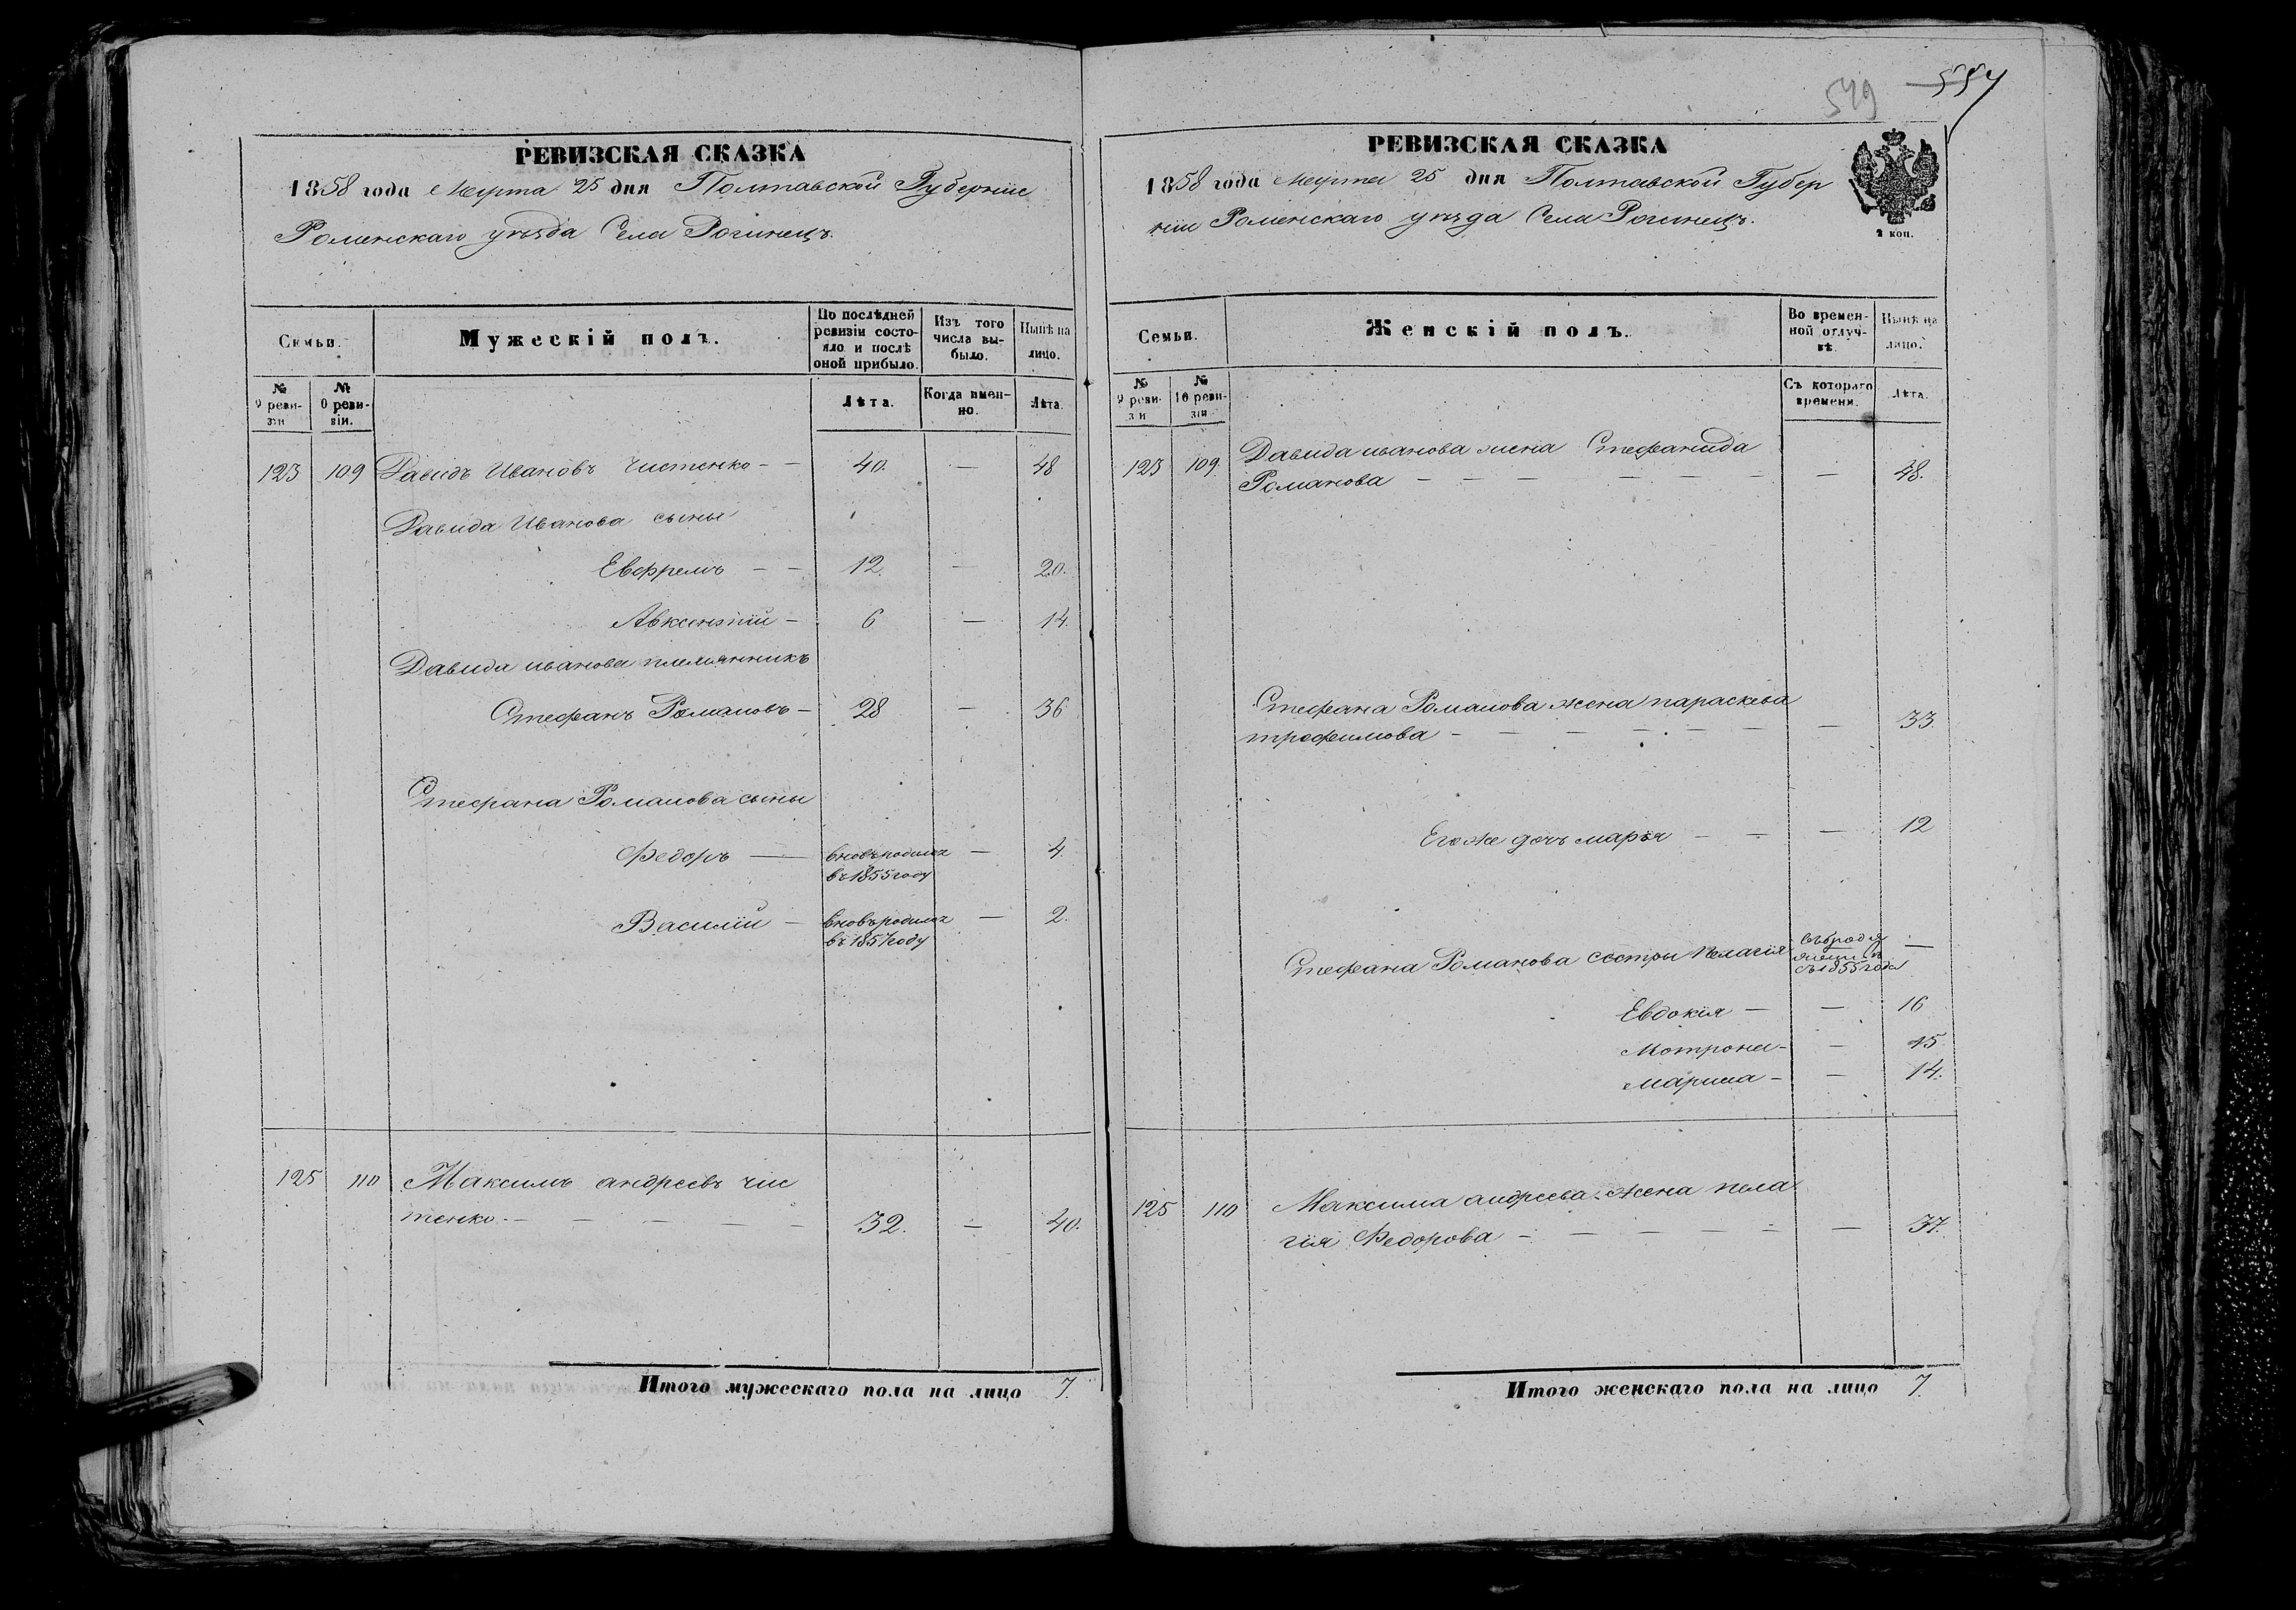 РЕВИЗСКАЯ СКАЗКА
1858 года Марта 25 дня Полтавской Губерніи
Роменскаго уѣзда Села Рогинецъ.
Семьи. Мужескій полъ. По послѣдней ревизіи состояло и послѣ оной прибыло. Изъ того числа выбыло. Нынѣ на лицо.
№ 9 ревизіи № 10 ревизіи. Лѣта. Когда именно. Лѣта.
123 109 Давидъ Ивановъ Чистенко - - 40. — 48
Давида Иванова сыны
Евфремъ - - 12. — 20.
Авксентій - 6 — 14.
Давида иванова племянникъ
Стефанъ Романовъ - 28 — 36
Стефана Романова сыны
Федоръ — вновь родился — 4.
въ 1855 году
Василій - вновь родился — 2.
въ 1857 году
125 110 Максимъ андреевъ чис
тенко - - - - - 32. — 40.
Итого мужескаго пола на лицо 7.
549 554
РЕВИЗСКАЯ СКАЗКА
1858 года Марта 25 дня Полтавской Губер
ніи Роменскаго уѣзда Села Рогинецъ.
2 коп.
Семьи. Женскій полъ. Во временной отлучкѣ. Нынѣ на лицо.
№ 9 ревизіи № 10 ревизіи Съ котораго времени. Лѣта.
123 109. Давида иванова жена Стефанида
Романова - - - - - - — 48.
Стефана Романова жена параскева
трофимова - - - - - - — 33.
Его же дочь марья - - — 12
Стефана Романова сестры пелагія
съ 1855 года —
Евдокія — — 16
Мотрона - — 15
марина - — 14.
125 110 Максима андреева жена пела
гія Федорова - - - - - — 37.
Итого женскаго пола на лицо 7.